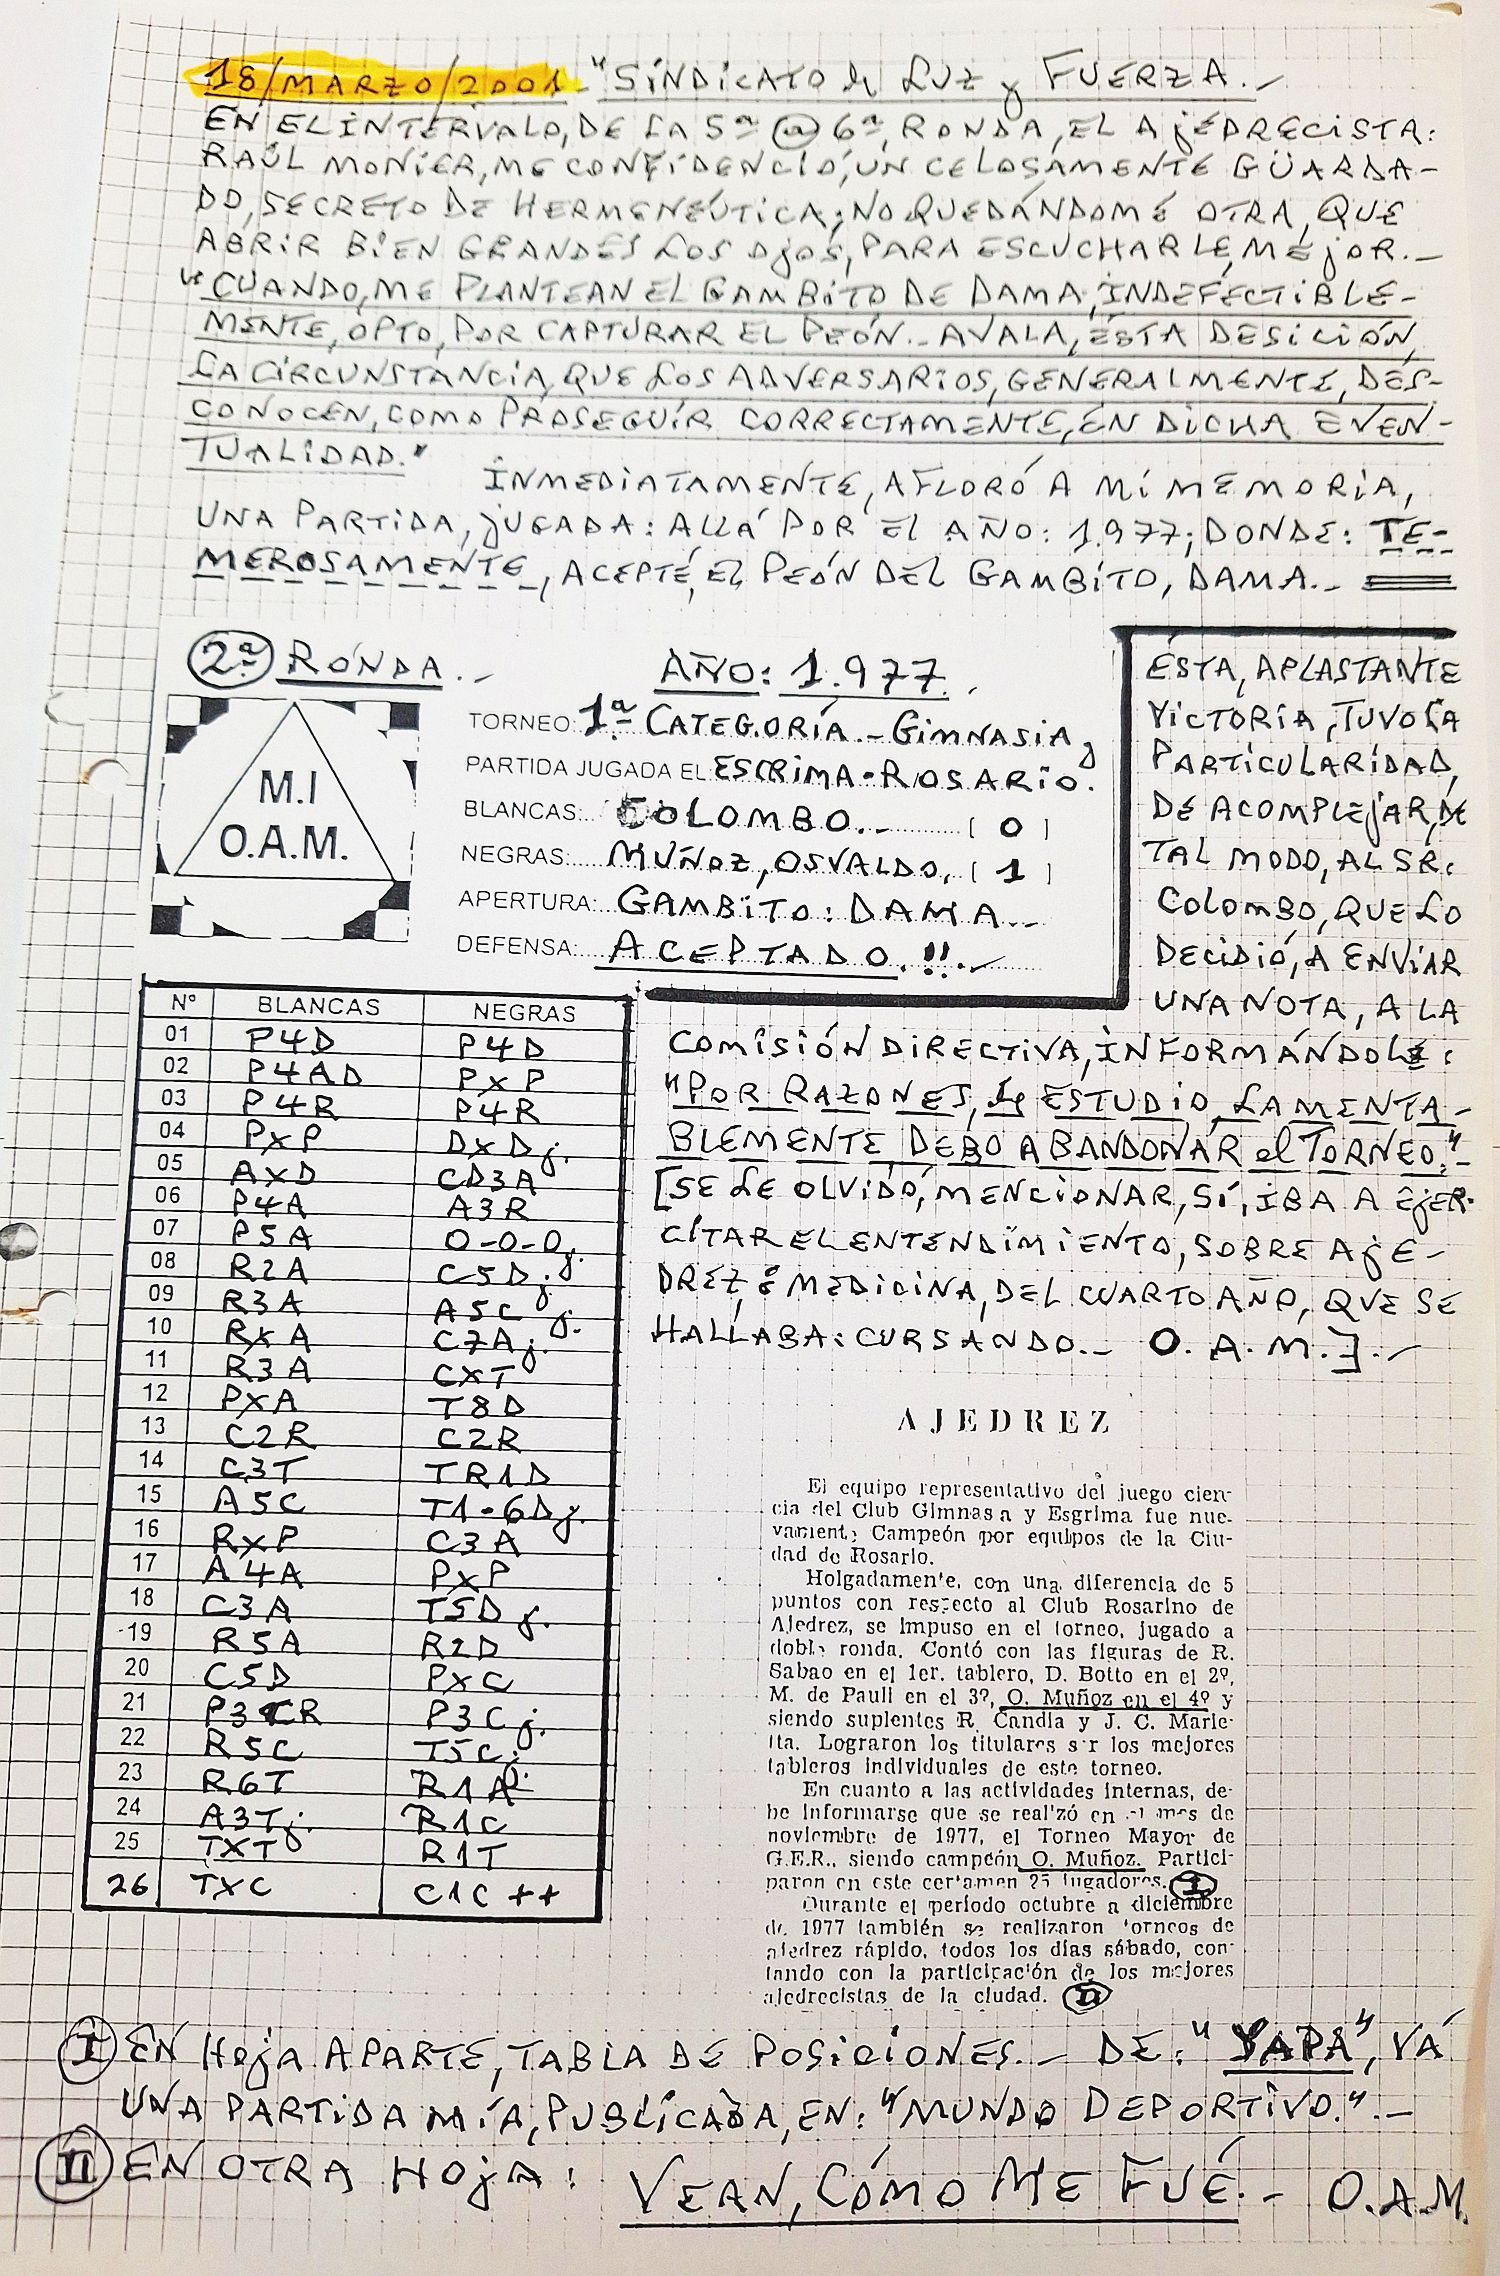 18/MARZO/2001 - "SINDICATO de LUZ y FUERZA.-
EN EL INTÉRVALO, DE LA 5ª @ 6ª, RONDA, EL AJEDRECISTA:
RAÚL MONIER, ME CONFIDENCIÓ, UN CELOSAMENTE GÜARDA-
DO, SECRETO DE HERMENÉUTICA; NO QUEDÁNDOMÉ OTRA, QUE
ABRIR BIEN GRANDES LOS OJOS, PARA ESCUCHARLE, MEJOR.-
"CUANDO, ME PLANTEAN EL GAMBITO DE DAMA, INDEFECTIBLE-
MENTE, OPTO, POR CAPTURAR EL PEÓN.- AVALA, ÉSTA DESICIÓN,
LA CIRCUNSTANCIA, QUE LOS ADVERSARIOS, GENERALMENTE, DES-
CONOCEN, COMO PROSEGUÍR CORRECTAMENTE, EN DICHA EVEN-
TUALIDAD."
INMEDIATAMENTE, AFLORÓ A MI MEMORIA,
UNA PARTIDA, JUGADA: ALLÁ POR EL AÑO: 1.977; DONDE: TE-
MEROSAMENTE, ACEPTÉ, EL PEÓN DEL GAMBITO, DAMA.-
2ª RONDA.-
AÑO: 1.977.
M.I
O.A.M.
TORNEO: 1ª CATEGORÍA.- GIMNASIA y
PARTIDA JUGADA EL: ESGRIMA-ROSARIO.
BLANCAS: COLOMBO.- ( 0 )
NEGRAS: MUÑOZ, OSVALDO. ( 1 )
APERTURA: GAMBITO: DAMA.-
DEFENSA: ACEPTADO.!!.-
ÉSTA, APLASTANTE
VICTORIA, TUVO LA
PARTICULARIDAD,
DE ACOMPLEJAR, DE
TAL MODO, AL SR:
COLOMBO, QUE LO
DECIDIÓ, A ENVIAR
UNA NOTA, A LA
COMISIÓN DIRECTIVA, INFORMÁNDOLE:
"POR RAZONES, de ESTUDIO, LAMENTA-
BLEMENTE, DEBO ABANDONAR el TORNEO."-
[SE LE OLVIDÓ, MENCIONAR, SÍ, IBA A EJER-
CITAR EL ENTENDIMIENTO, SOBRE AJE-
DREZ, ó MEDICINA, DEL CUARTO AÑO, QUE SE
HALLABA: CURSANDO.- O.A.M.].-
Nº BLANCAS NEGRAS
01 P4D P4D
02 P4AD PxP
03 P4R P4R
04 PxP DxDj.
05 AxD CD3A
06 P4A A3R
07 P5A 0-0-0j.
08 R2A C5Dj.
09 R3A A5Cj.
10 RxA C7Aj.
11 R3A CxT
12 PxA T8D
13 C2R C2R
14 C3T TR1D
15 A5C T1-6Dj.
16 RxP C3A
17 A4A PxP
18 C3A T5Dj.
19 R5A R2D
20 C5D PxC
21 P3CR P3Cj.
22 R5C T5Cj.
23 R6T R1A
24 A3Tj. R1C
25 TXT R1T
26 TXC C1C++
AJEDREZ
El equipo representativo del juego cien-
cia del Club Gimnasa y Esgrima fue nue-
vament, Campeón por equipos de la Ciu-
dad de Rosario.
Holgadamente, con una diferencia de 5
puntos con respecto al Club Rosarino de
Ajedrez, se impuso en el torneo, jugado a
doble ronda. Contó con las figuras de R.
Sabao en el 1er. tablero, D. Botto en el 2º,
M. de Pauli en el 3º, O. Muñoz en el 4º y
siendo suplentes R. Candia y J. C. Marie-
tta. Lograron los titulares ser los mejores
tableros individuales de este torneo.
En cuanto a las actividades internas, de-
be informarse que se realizó en el mes de
noviembre de 1977, el Torneo Mayor de
G.E.R., siendo campeón O. Muñoz. Partici-
paron en este certamen 25 jugadores. I
Durante el período octubre a diciembre
de 1977 también se realizaron torneos de
ajedrez rápido, todos los días sábado, con-
tando con la participación de los mejores
ajedrecistas de la ciudad. II
I EN HOJA APARTE, TABLA DE POSICIONES.- DE: "YAPA", VÁ
UNA PARTIDA MÍA, PUBLICADA, EN: "MUNDO DEPORTIVO.".-
II EN OTRA HOJA: VEAN, CÓMO ME FUÉ.- O.A.M.